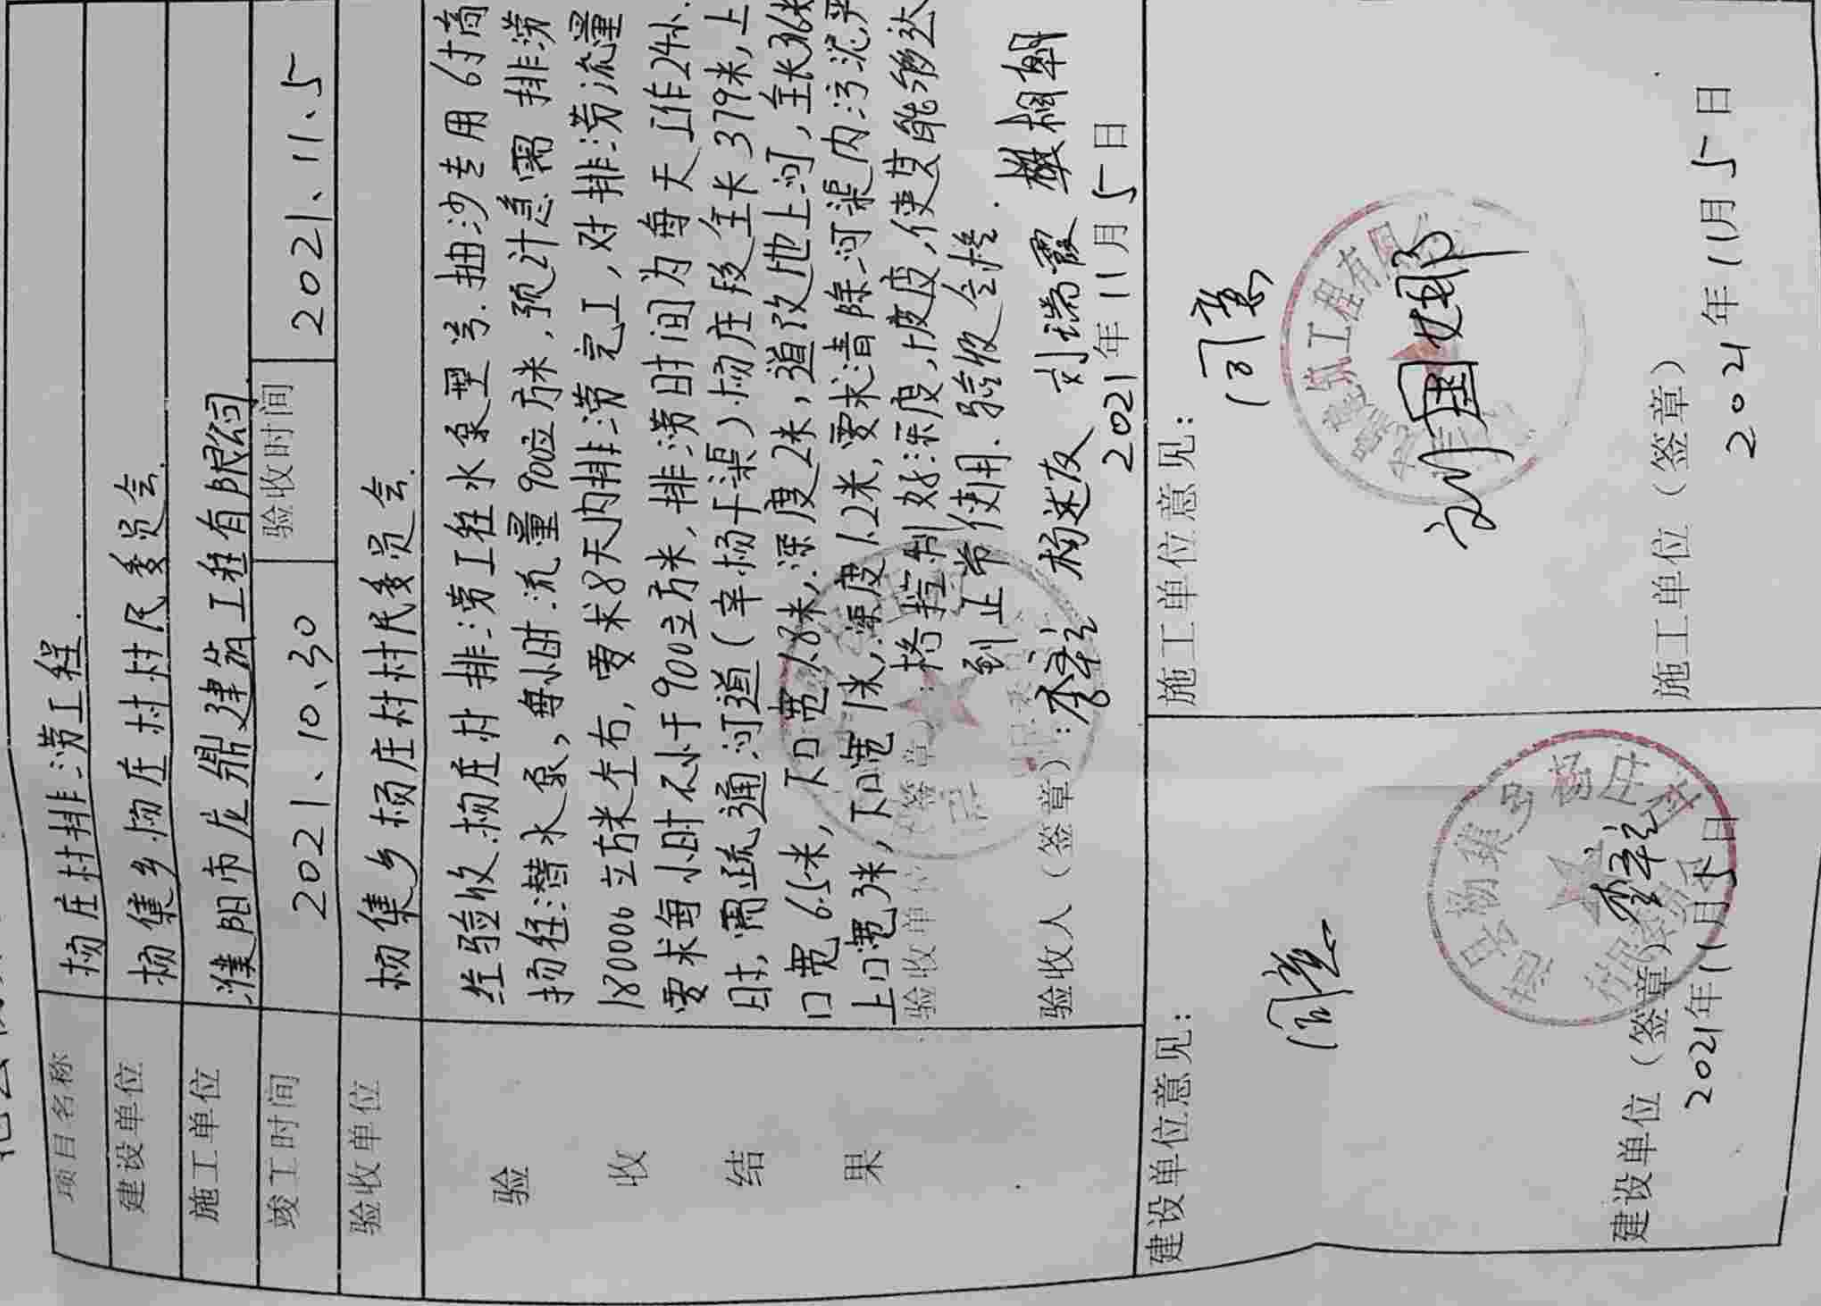 项目名称 杨庄村排涝工程.
建设单位 杨集乡杨庄村村民委员会.
施工单位 濮阳市龙鼎建筑工程有限公司
竣工时间 2021、10、30 验收时间 2021、11、5
验收单位 杨集乡杨庄村村民委员会.
验收结果
经验收.杨庄村排涝工程水泵型号.抽沙专用6寸高
扬程潜水泵,每小时流量900立方米,预计急需排涝
180000立方米左右,要求8天内排涝完工,对排涝流量
要求每小时不小于900立方米,排涝时间为每天工作24小
时,需疏通河道(辛杨干渠)杨庄段全长379米,上
口宽6.5米,下口宽1.8米,深度2米,道改地上河,全长36米
上口宽3米,下口宽1米,深度1.2米,要求清除河渠内污泥,严
格控制好深度,坡度,使其能够达
到正常使用.验收合格.
验收单位(签章):
验收人(签章): 杨述友 刘瑞霞
2021年11月5日
建设单位意见:
同意
范县杨集乡杨庄村
村民委员会
建设单位(签章)
2021年11月5日
施工单位意见:
同意
建筑工程有限
施工单位(签章)
2021年11月5日